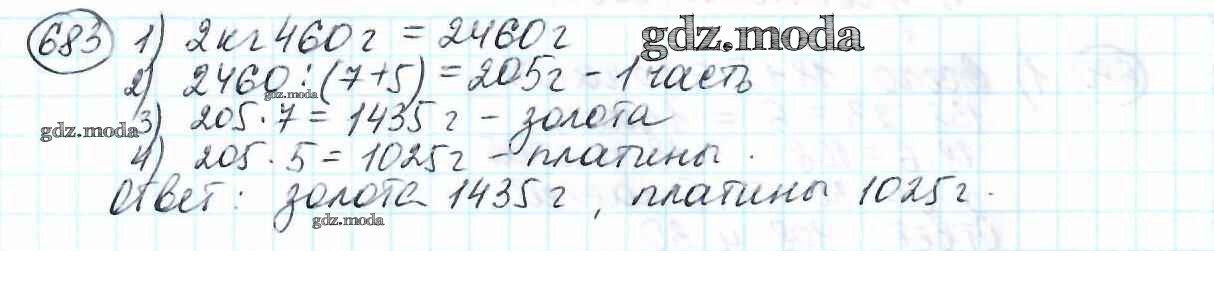 683 1) 2кг460г = 2460г
gdz.moda
2) 2460:(7+5) = 205г - 1 часть
gdz.moda
gdz.moda
3) 205·7 = 1435г - золота
4) 205·5 = 1025г - платины.
Ответ: золота 1435г, платины 1025г.
gdz.moda